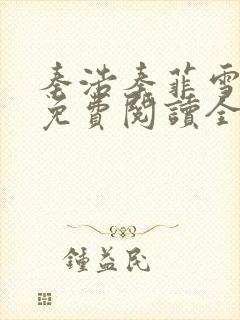 秦浩秦菲雪
免費閱讀全
鍾益民